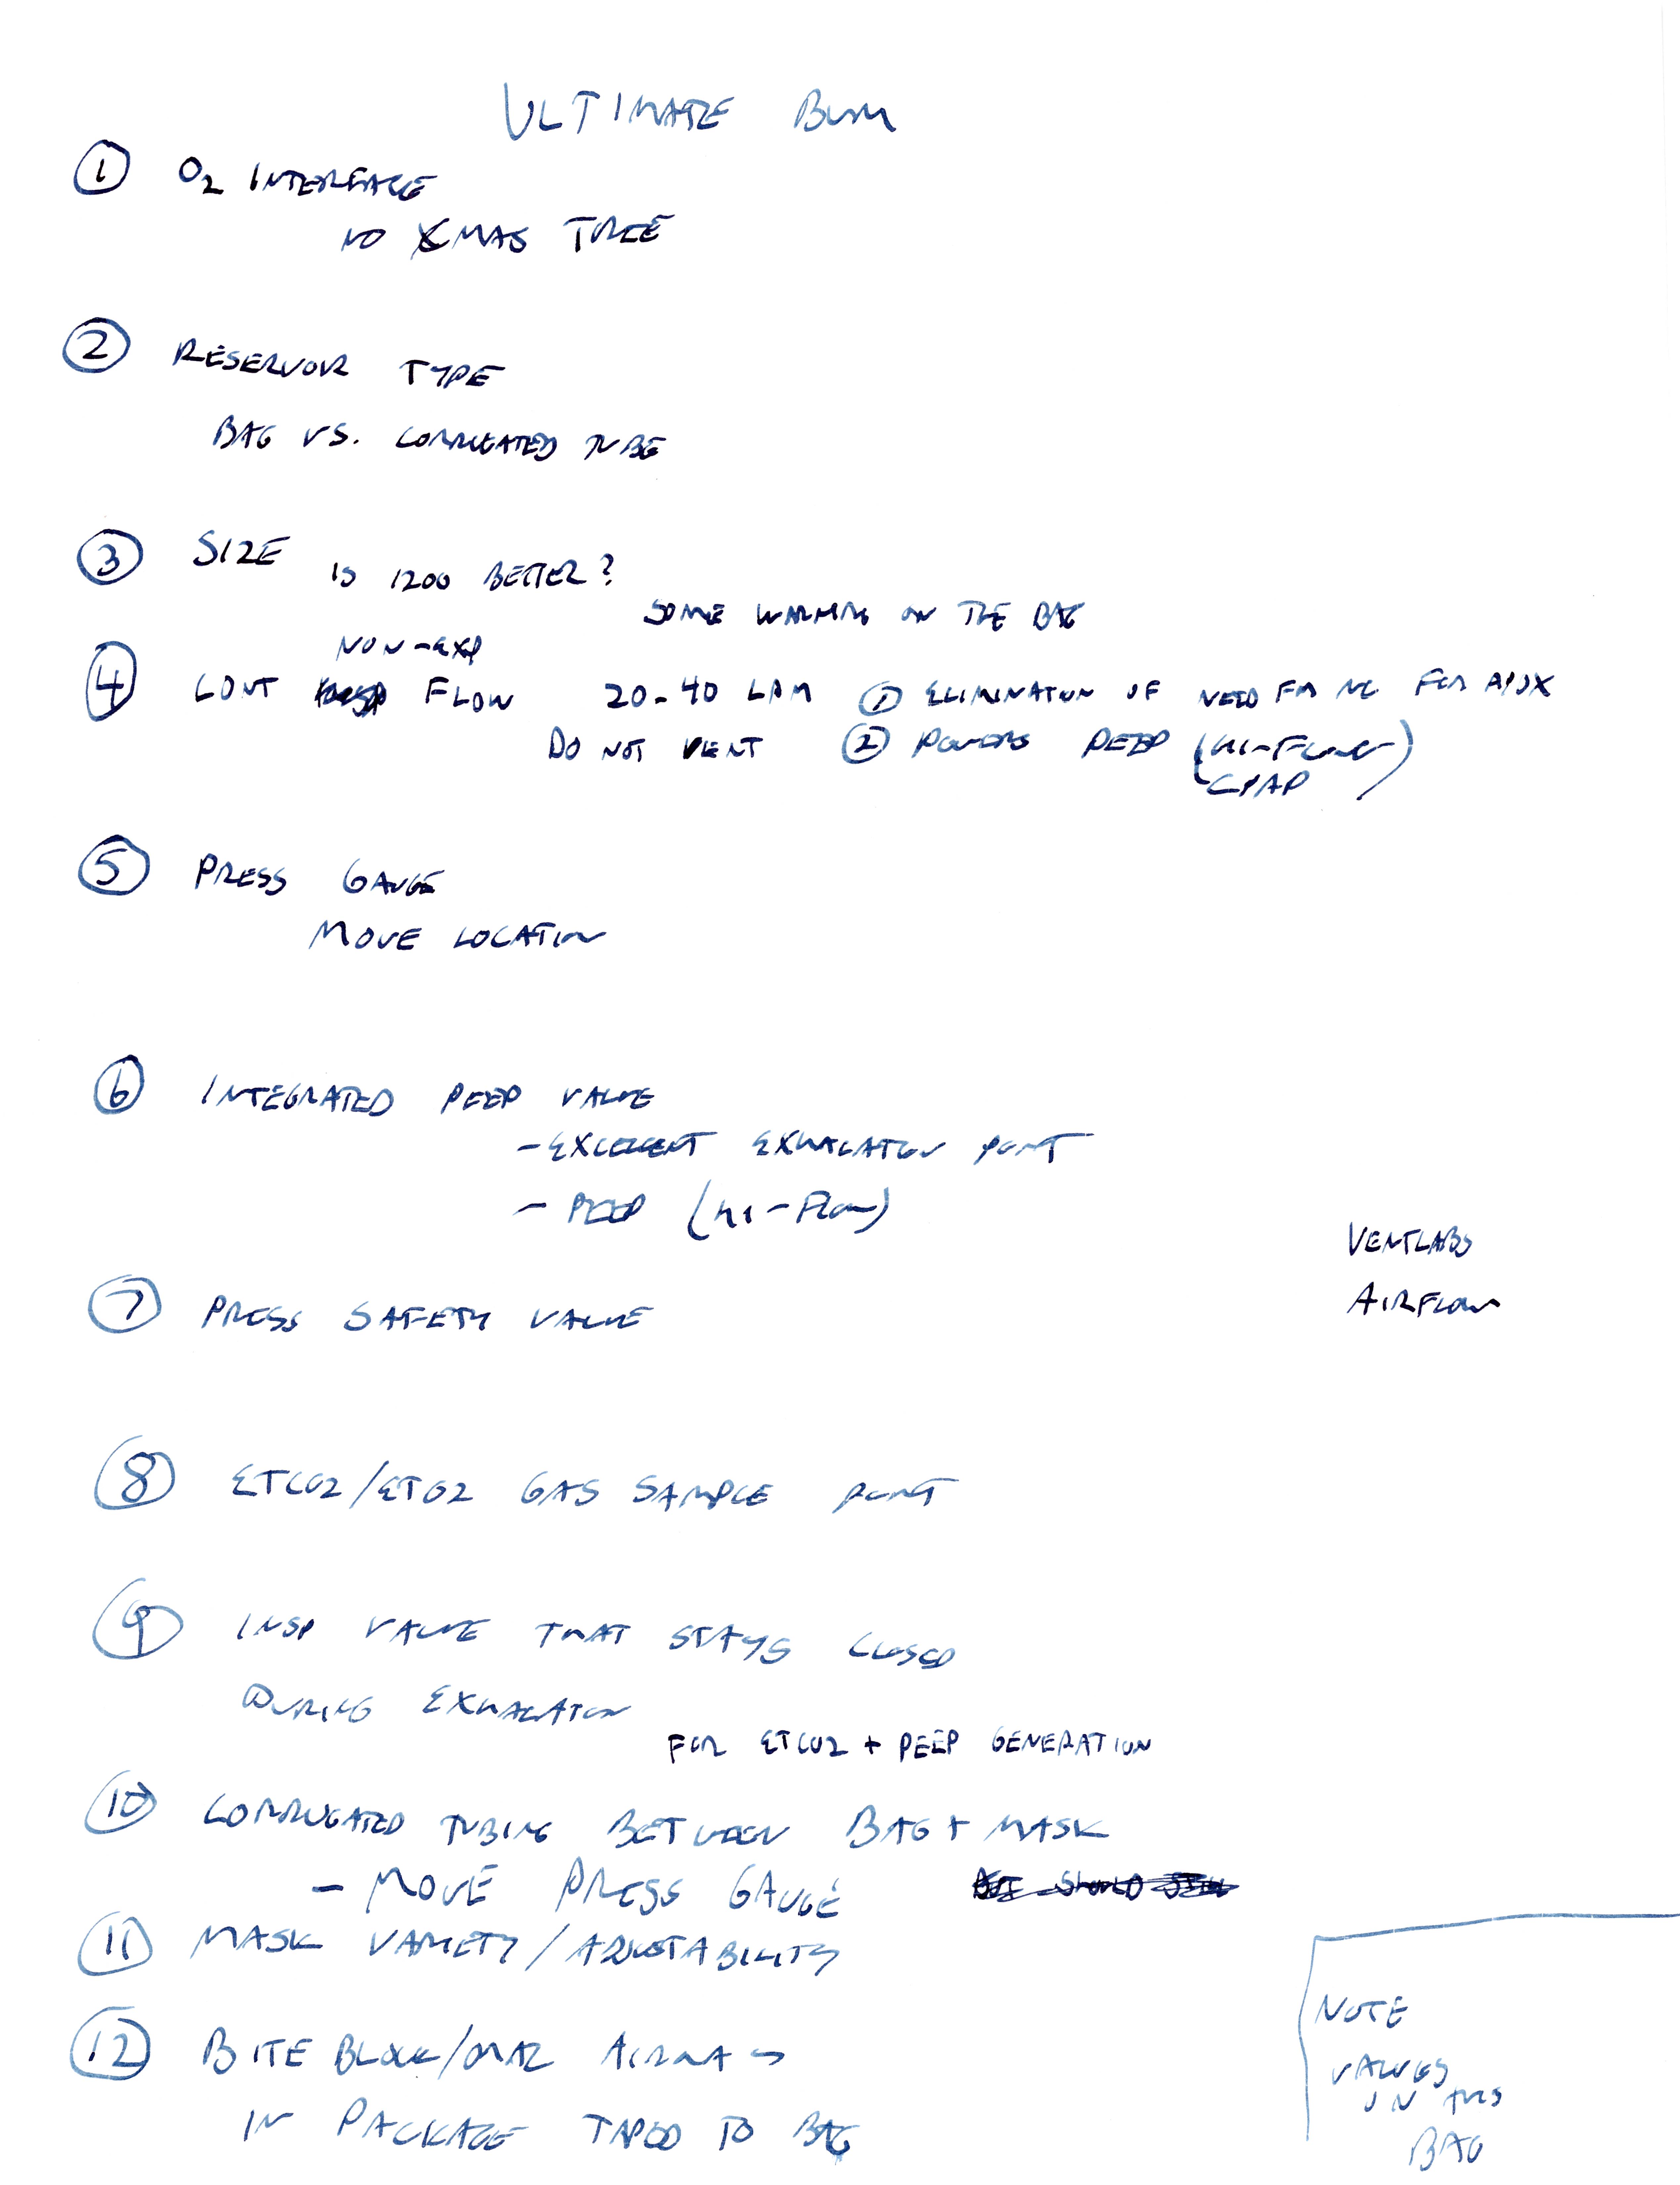 ULTIMATE BVM
① O2 INTERFACE
NO XMAS TREE
② RESERVOIR TYPE
BAG VS. CORRUGATED TUBE
③ SIZE
IS 1200 BETTER?
SOME WARNING ON THE BAG
NON-EXP
④ CONT FLOW 20-40 LPM ① ELIMINATION OF NEED FOR NC FOR APOX
DO NOT VENT ② POWERS PEEP (HI-FLOW)
CPAP
⑤ PRESS GAUGE
MOVE LOCATION
⑥ INTEGRATED PEEP VALVE
- EXCELLENT EXHALATION PORT
- PEEP (HI-FLOW)
VENTLABS
AIRFLOW
⑦ PRESS SAFETY VALVE
⑧ ETCO2/ETO2 GAS SAMPLE PORT
⑨ INSP VALVE THAT STAYS CLOSED
DURING EXHALATION
FOR ETCO2 + PEEP GENERATION
⑩ CORRUGATED TUBING BETWEEN BAG + MASK
- MOVE PRESS GAUGE
⑪ MASK VARIETY/ADJUSTABILITY
⑫ BITE BLOCK/ORAL AIRWAY
IN PACKAGE TAPED TO BAG
NOTE
VALVES
IN THIS
BAG